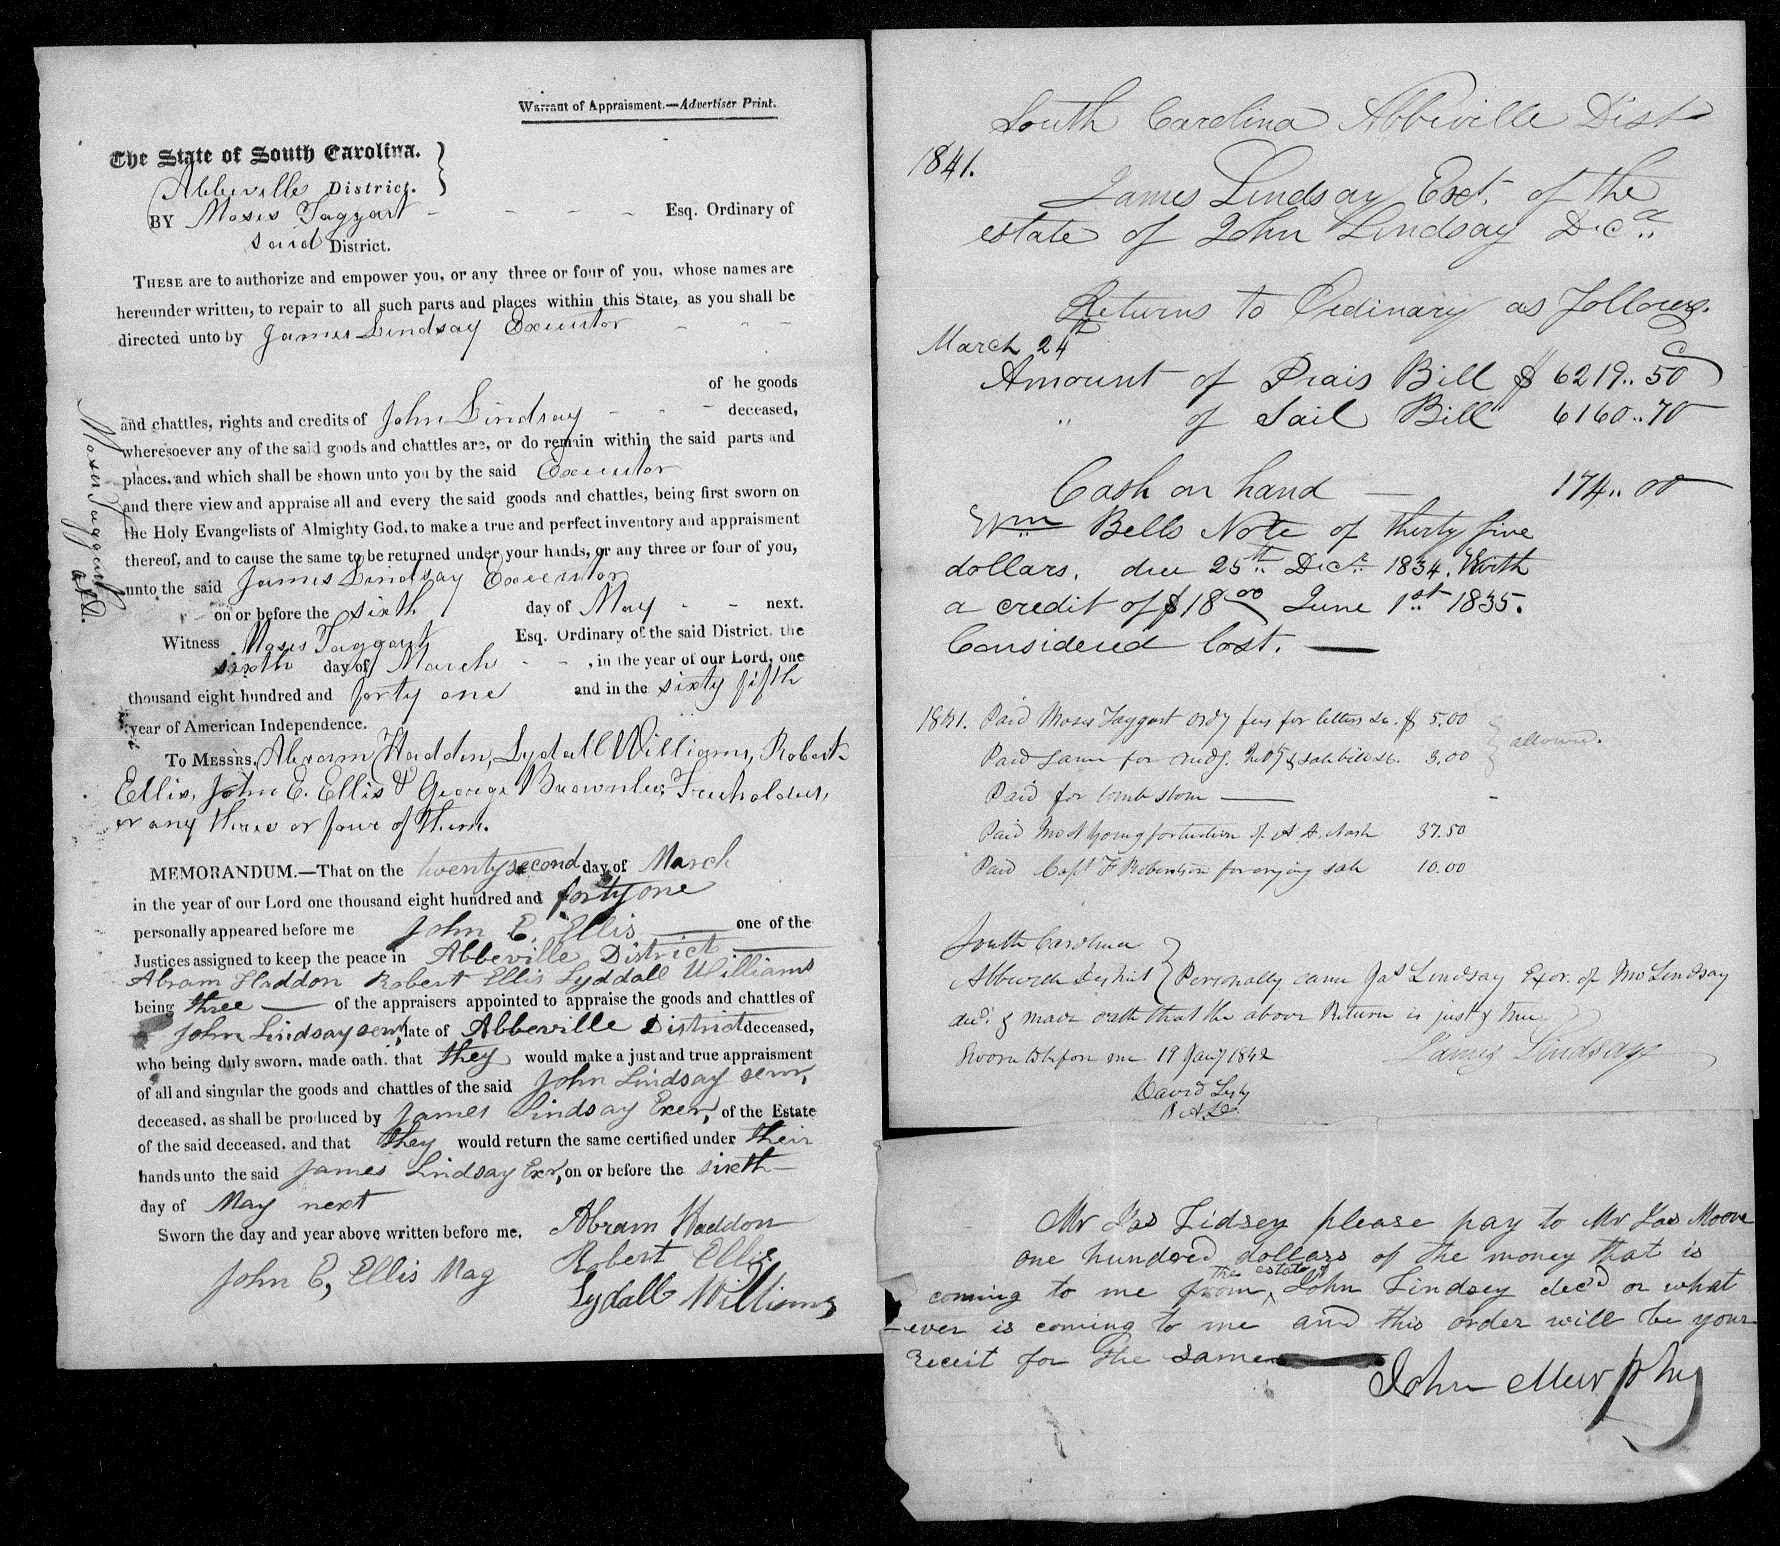 Warrant of Appraisment.—Advertiser Print.
The State of South Carolina.
Abbeville District.
BY Moses Taggart - - - - Esq. Ordinary of
said District.
THESE are to authorize and empower you, or any three or four of you, whose names are
hereunder written, to repair to all such parts and places within this State, as you shall be
directed unto by James Lindsay Executor - - -
of he goods
and chattles, rights and credits of John Lindsay - - - deceased,
wheresoever any of the said goods and chattles are, or do remain within the said parts and
places, and which shall be shown unto you by the said Executor
and there view and appraise all and every the said goods and chattles, being first sworn on
the Holy Evangelists of Almighty God, to make a true and perfect inventory and appraisment
thereof, and to cause the same to be returned under your hands, or any three or four of you,
unto the said James Lindsay Executor
on or before the sixth day of May - - next.
Witness Moses Taggart Esq. Ordinary of the said District, the
sixth day of March - - , in the year of our Lord, one
thousand eight hundred and forty one and in the sixty fifth
year of American Independence.
To MESSRS. Abram Haddon, Lydall Williams, Robert
Ellis, John E. Ellis & George Brownlee, Freeholders,
or any three or four of them.
Moses Taggart
O.A.D.
MEMORANDUM.—That on the twenty second day of March
in the year of our Lord one thousand eight hundred and forty one
personally appeared before me John E. Ellis —— one of the
Justices assigned to keep the peace in Abbeville District ——
Abram Haddon Robert Ellis Lyddall Williams
being three —— of the appraisers appointed to appraise the goods and chattles of
John Lindsay senr, late of Abbeville District deceased,
who being duly sworn, made oath, that they would make a just and true appraisment
of all and singular the goods and chattles of the said John Lindsay senr,
deceased, as shall be produced by James Lindsay Exer, of the Estate
of the said deceased, and that they would return the same certified under their
hands unto the said James Lindsay Exr, on or before the sixth —
day of May next
Sworn the day and year above written before me, Abram Haddon
John E, Ellis Mag Robert Ellis
Lydall Williams
South Carolina Abbeville Dist
1841.
James Lindsay Ext. of the
estate of John Lindsay Decd..
Returns to Ordinary as follows.
March 24th
Amount of Prais Bill $ 6219..50
" of Sail Bill 6160..70
Cash on hand — 174..00
Wm Bells Note of thirty five
dollars. due 25th.. Decr.. 1834. With
a credit of $18 00 June 1st 1835.
Considered lost. —
1841. Paid Moses Taggart Ordy fees for letters &c. $ 5.00
Paid same for sale bill &c. 3.00
allowed.
Paid for tomb stone —— -
Paid for tuition of A A. Nash 37.50
Paid Capt F Robertson for crying sale 10.00
South Carolina
Abbeville District } Personally came Jas Lindsay Exor. of Jno Lindsay
decd. & made oath that the above Return is just & true
Sworn to before me 19 Jany 1842 James Lindsay
David Lesly
O.A.D.
Mr Jas Lidsey please pay to Mr Jas Moore
one hundred dollars of the money that is
coming to me from the estate of John Lindsey decd or what
-ever is coming to me and this order will be your
receit for the same
John Murphy